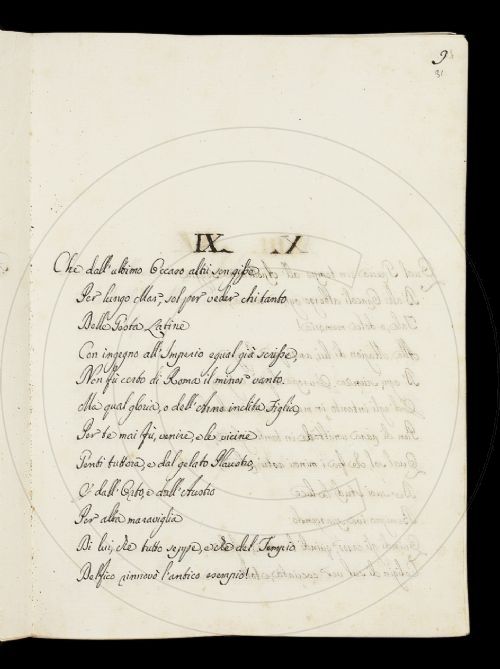 9
31
IX.
Che dall'ultimo Occaso altri sen gisse
Per lungo Mar, sol per veder chi tanto
Belle Gesta Latine
Con ingegno all'Imperio equal già scrisse,
Non fù certo di Roma il minor vanto.
Ma qual gloria, o dell'Arno inclita Figlia
Per te mai fù, venire, e le vicine
Genti tuttora, e dal gelato Plaustro,
E dall'Orto, e dall'Austro
Per alta maraviglia
Di lui, che tutto seppe, e che del Tempio
Belfico rinnovò l'antico esempio!